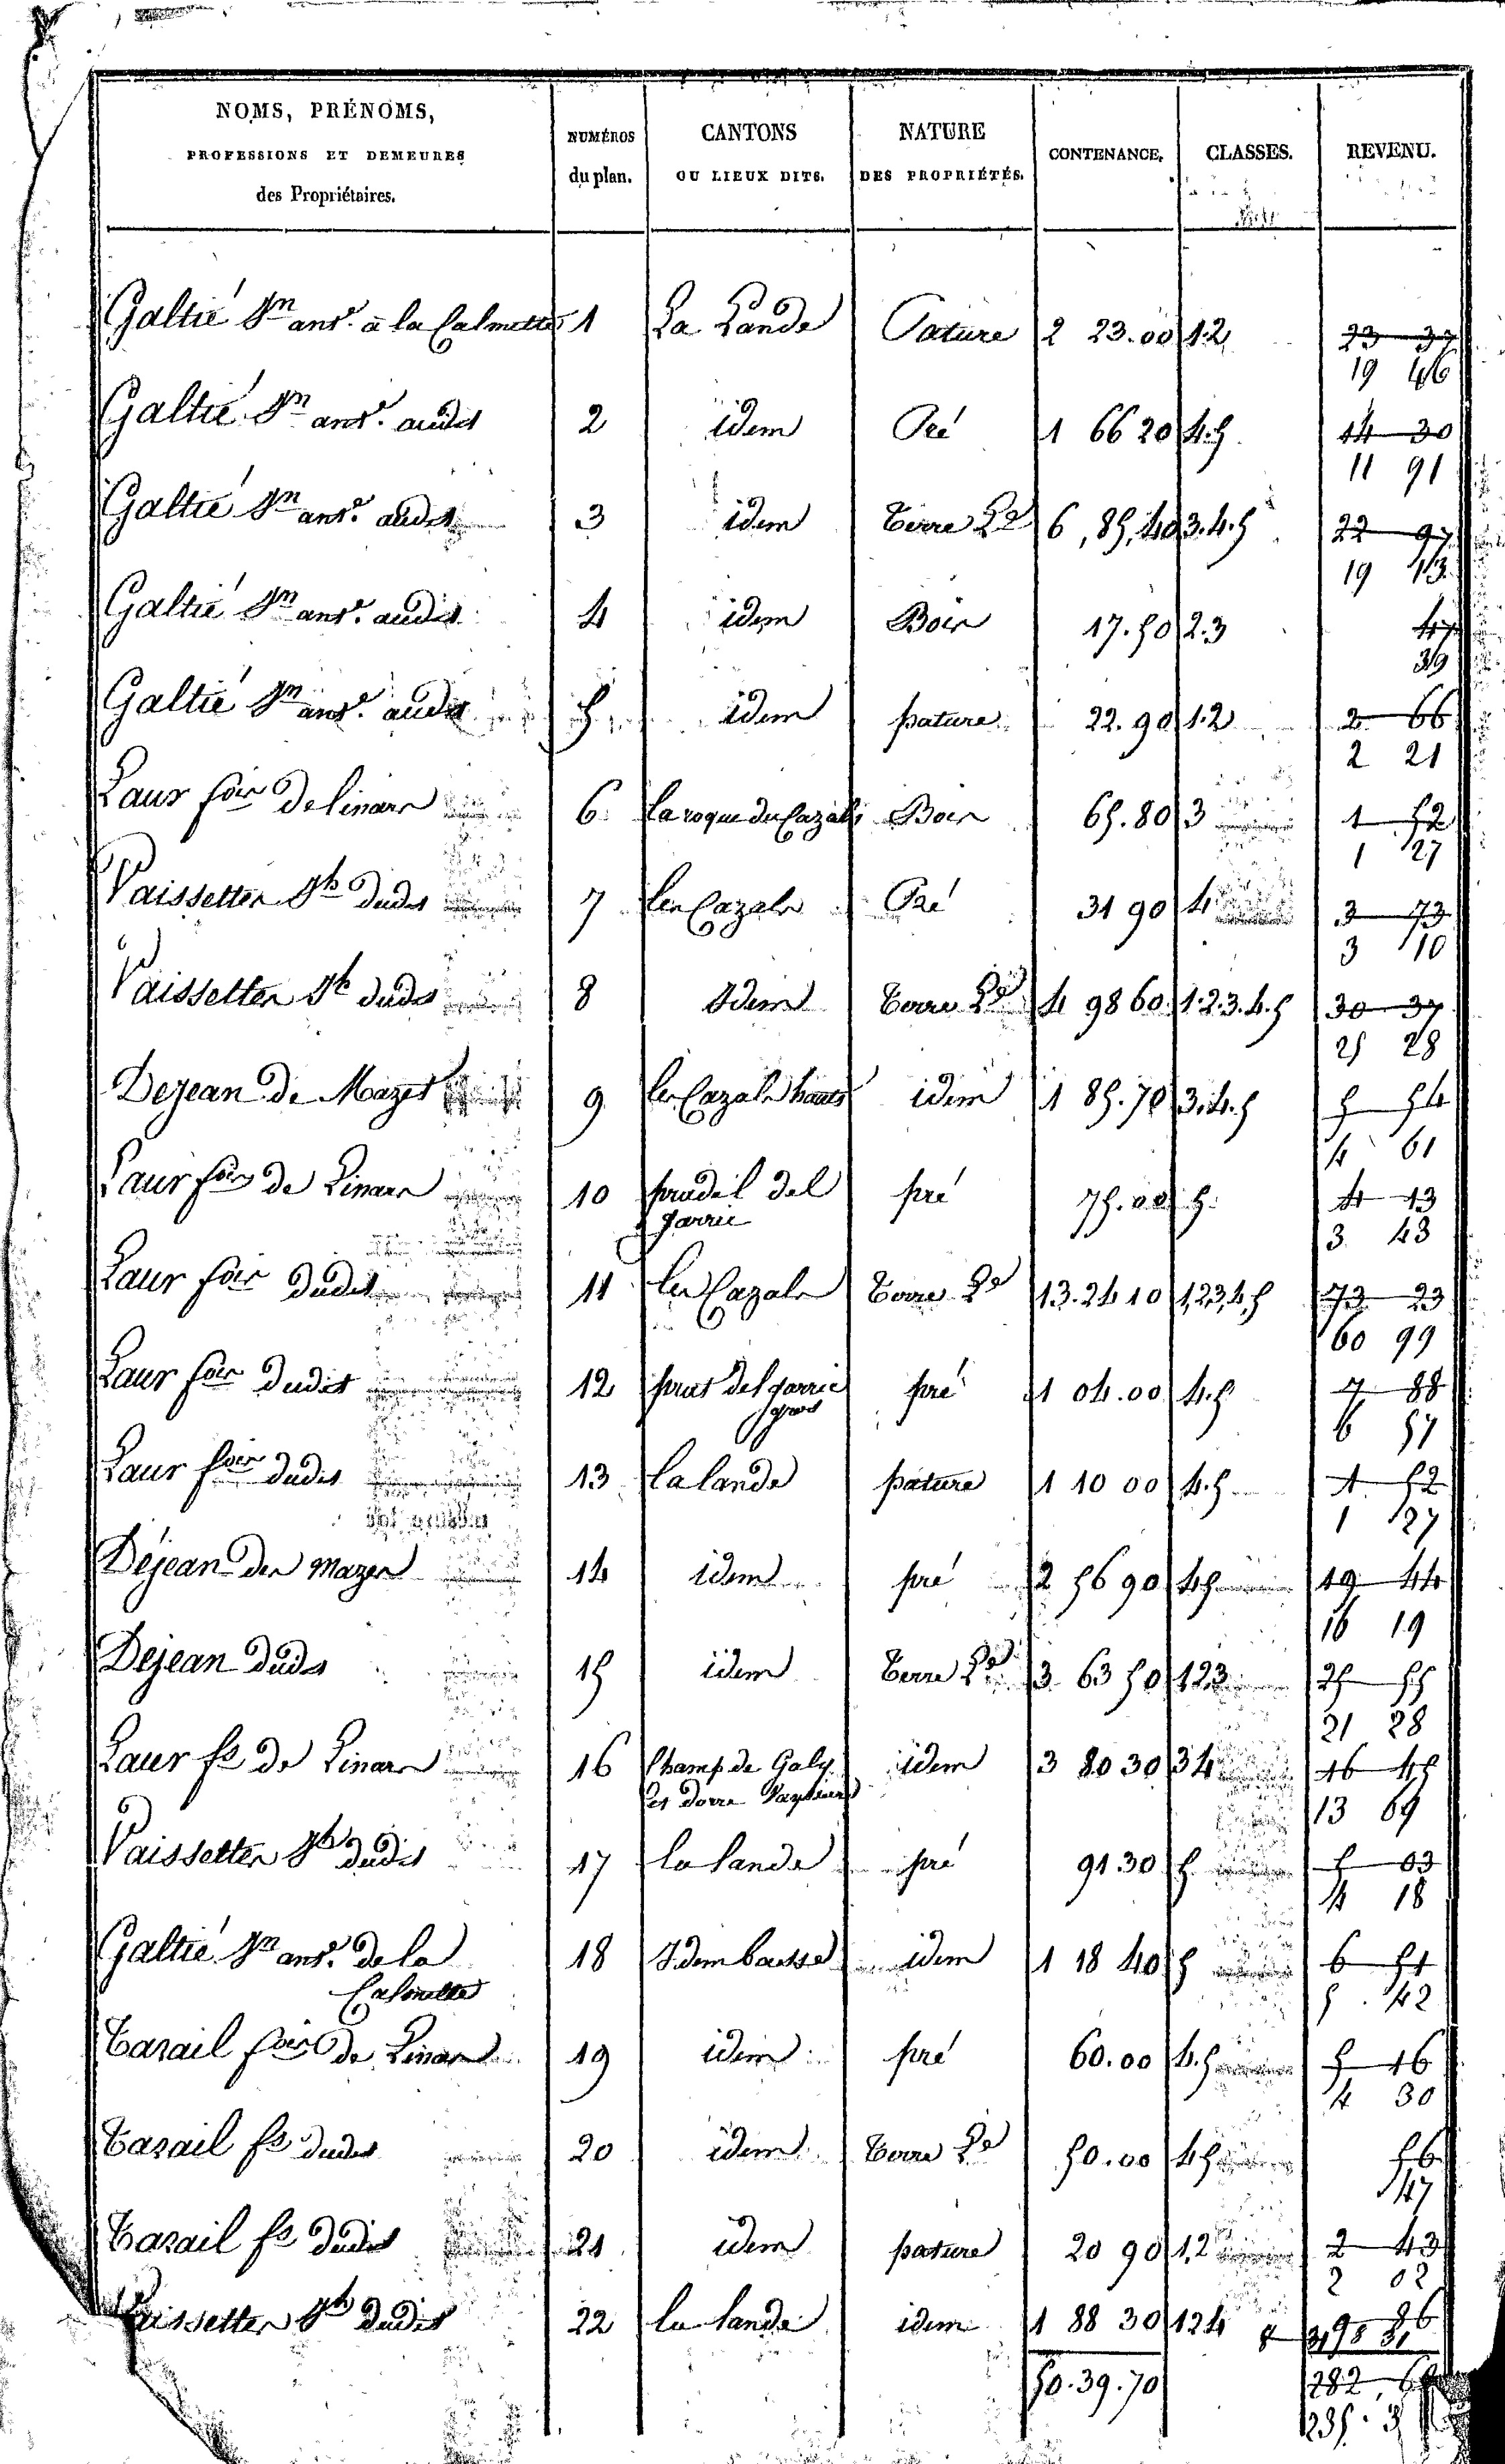 NOMS, PRÉNOMS,
PROFESSIONS ET DEMEURES
des Propriétaires.
NUMÉROS
du plan.
CANTONS
OU LIEUX DITS.
NATURE
DES PROPRIÉTÉS.
CONTENANCE.
CLASSES.
REVENU.
Galtié Jn ant.e à la Calmette 1 La Lande Pature 2 23.00 1.2 23 37
19 46
Galtié Jn ant.e audit 2 idem Pré 1 66 20 4.5 14 30
11 91
Galtié Jn ant.e audit 3 idem Terre Le 6,85,40 3.4.5 22 97
19 13
Galtié Jn ant.e audit 4 idem Bois 17.50 2.3 47
39
Galtié Jn ant.e audit 5 idem pature 22.90 1.2 2 66
2 21
Laur fois de linars 6 la roque du Cazals Bois 65.80 3 1 52
1 27
Vaissettes Jh dudit 7 les Cazals Pré 31 90 4 3 73
3 10
Vaissettes Jh dudit 8 Idem Terre Le 4 98 60 1.2.3.4.5 30 37
25 28
Dejean de Mazet 9 les Cazals hauts idem 1 85.70 3.4.5 5 54
4 61
Laur fois de Linars 10 pradel del pré 75.00 5. 4 13
garric
3 43
Laur fois dudit 11 les Cazals Terre Le 13.24 10 1,2,3,4,5 73 23
60 99
Laur fois dudit 12 prat del garric pré 1 04.00 4.5 7 88
gros
6 57
Laur fois dudit 13 la lande pature 1 10 00 4.5 1 52
1 27
Déjean des Mazes 14 idem pré 2 56 90 4 5 19 44
16 19
Déjean dudit 15 idem Terre Le 3 63 50 1 2 3 25 55
21 28
Laur fs de Linars 16 Champ de Galy idem 3 80 30 3 4 16 45
13 69
Vaissettes Jh dudit 17 la lande pré 91 30 5 5 03
4 18
Galtié Jn ant.e de la 18 Idem basse idem 1 18 40 5 6 51
Calmette
5 42
Tarail fois de Linars 19 idem pré 60.00 4.5 5 16
4 30
Tarail fs dudit 20 idem Terre Le 50.00 4 5 56
47
Tarail fs dudit 21 idem pature 20 90 1,2 2 43
2 02
Vaissettes Jh dudit 22 la lande idem 1 88 30 1 2 4
50.39.70